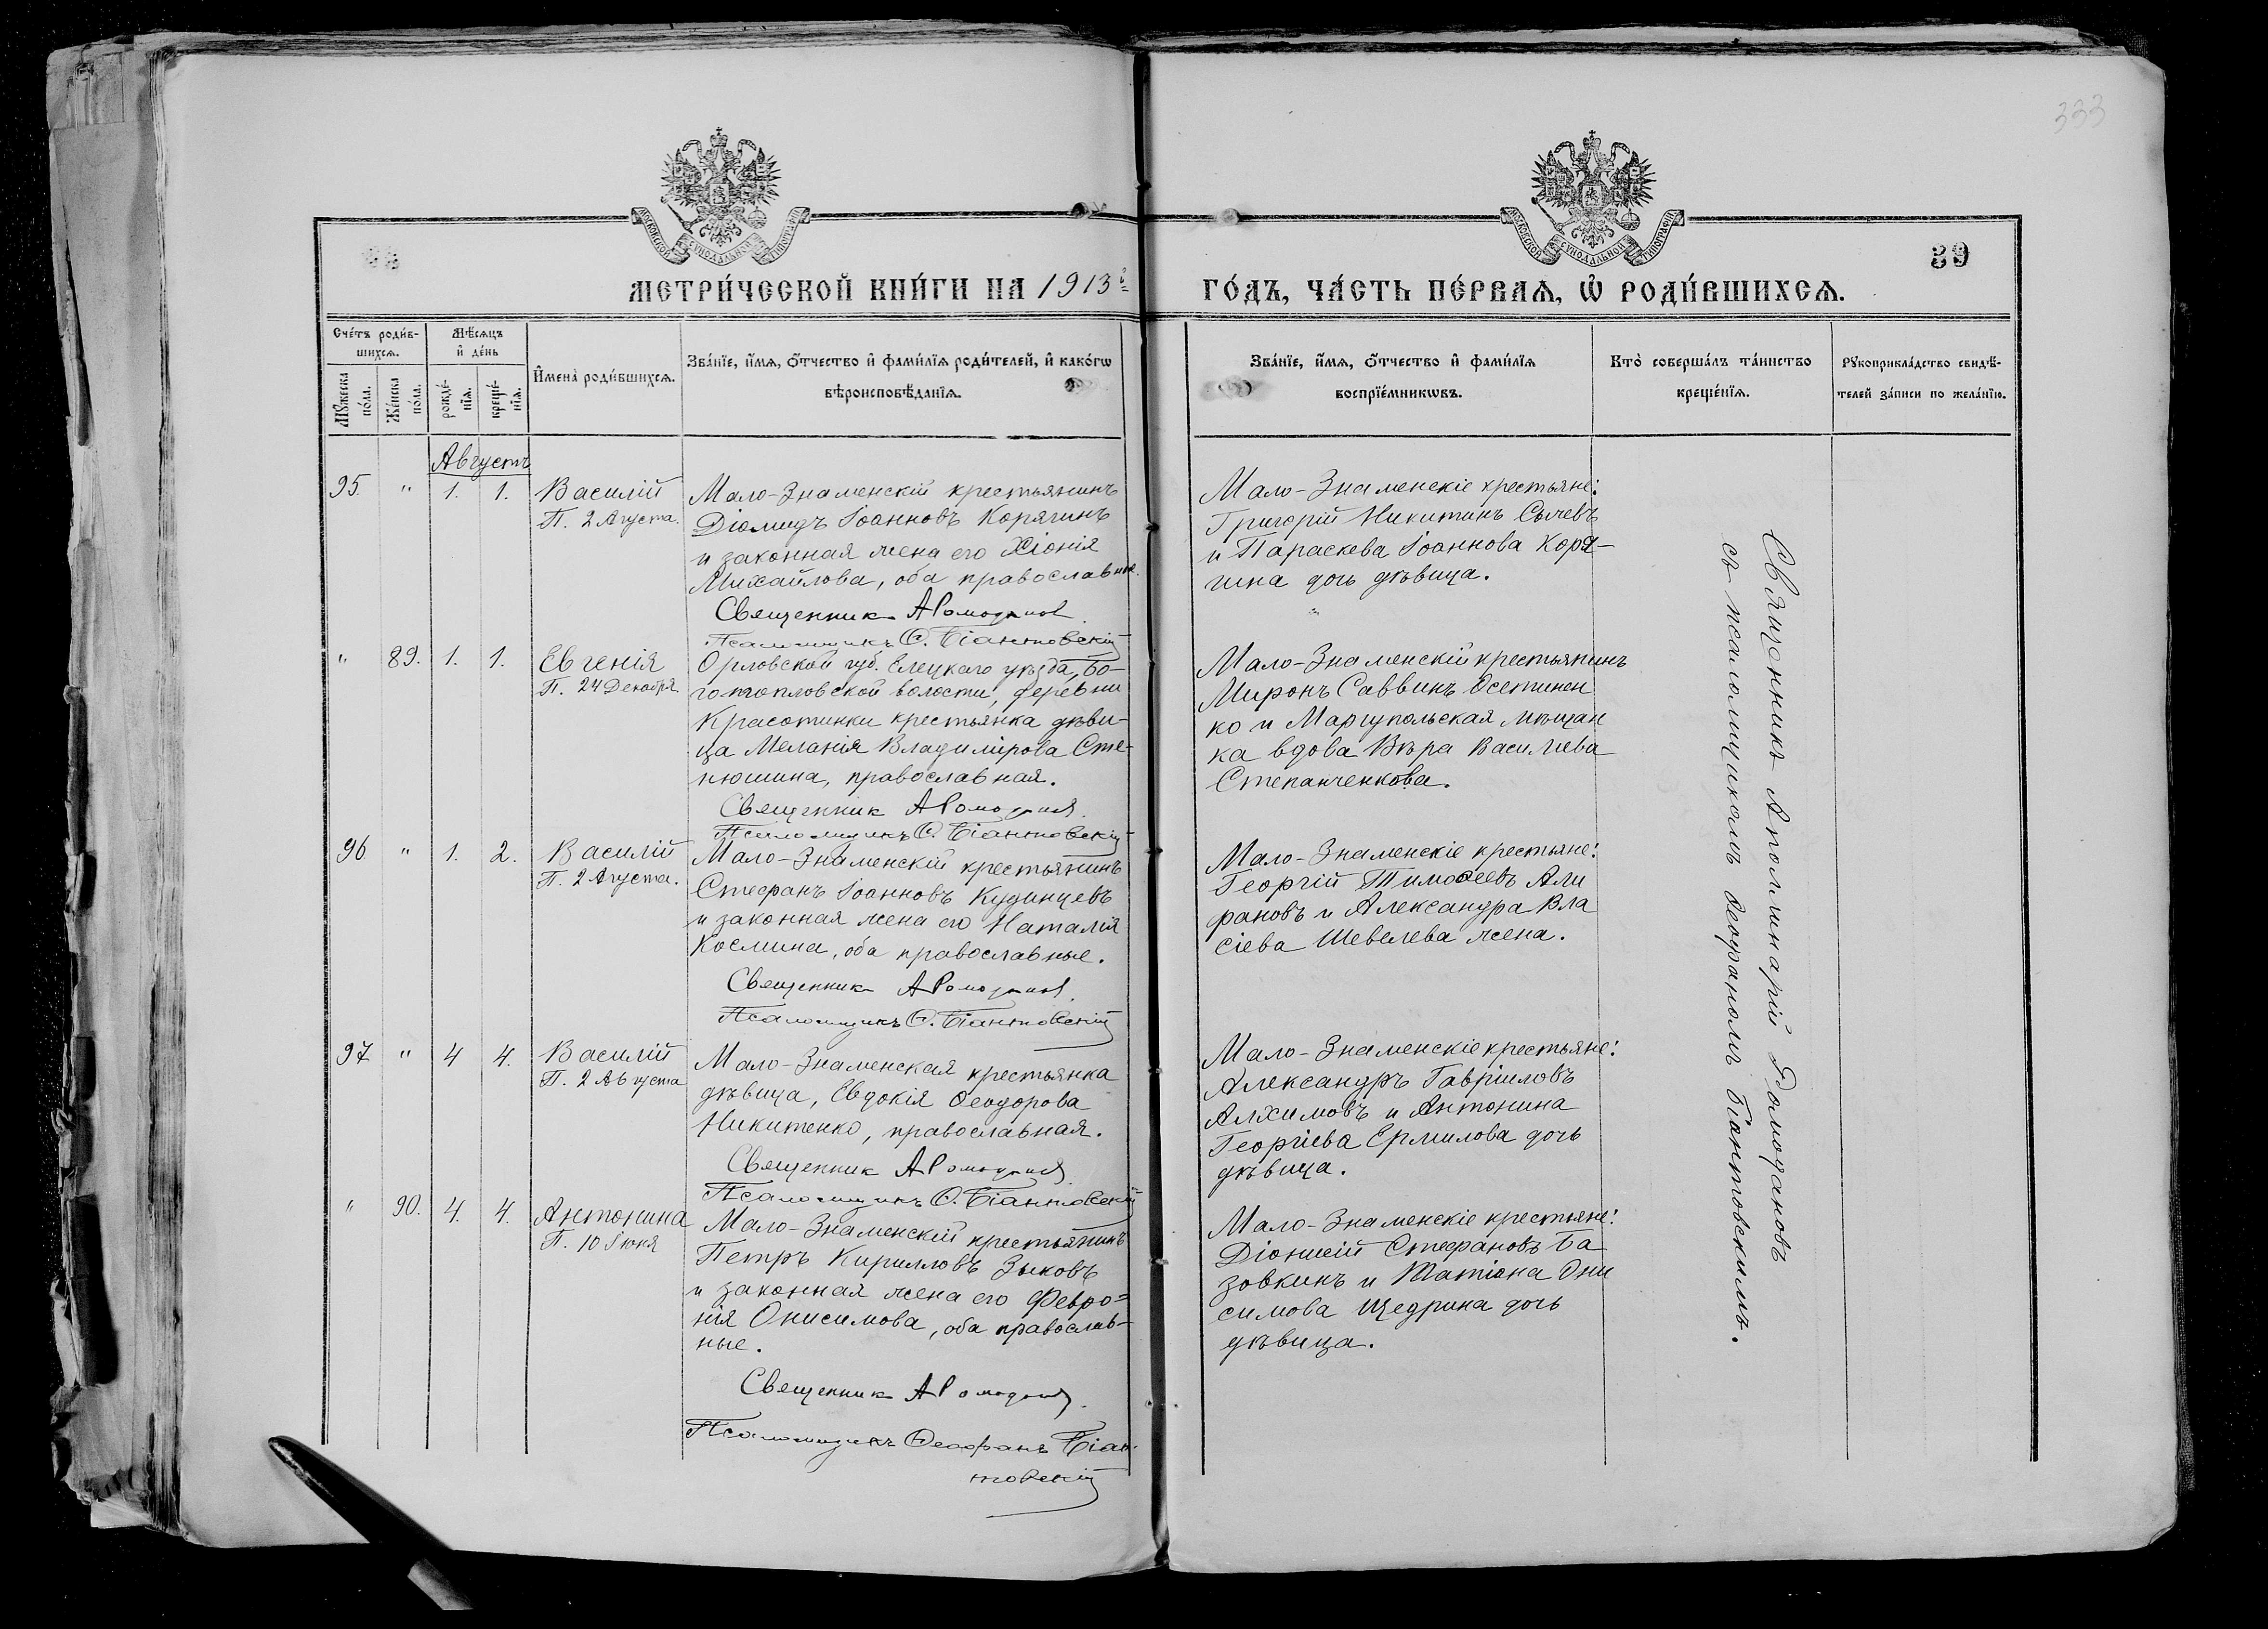 333
МОСКОВСКОЙ СѴНОДАЛЬНОЙ ТИПОГРАФІИ
МОСКОВСКОЙ СѴНОДАЛЬНОЙ ТИПОГРАФІИ
39
МЕТРИ́ЧЕСКОЙ КНИ́ГИ НА 1913й
ГО́ДЪ, ЧА́СТЬ ПЕ́РВАѦ, Ѡ҆ РОДИ́ВШИХСѦ.
Сче́тъ роди́в-
шихсѧ.
Мѣ́сѧцъ
и҆ де́нь
Мꙋ́жеска
по́ла.
Же́нска
по́ла.
рожде́-
нїѧ.
креще́-
нїѧ.
И҆мена̀ роди́вшихсѧ.
Зва́нїе, и҆́мѧ, ѻ҆́тчество и҆ фами́лїѧ роди́телей, и҆ како́гѡ
вѣроисповѣ́данїѧ.
Зва́нїе, и҆́мѧ, ѻ҆́тчество и҆ фами́лїѧ
воспрїе́мникѡвъ.
Кто̀ соверша́лъ та́инство
креще́нїѧ.
Рꙋкоприкла́дство свидѣ́-
телей за́писи по жела́нїю.
Августъ
95. " 1. 1. Василій
П. 2 Августа.
Мало-Знаменскій крестьянинъ
Діомидъ Іоанновъ Корягинъ
и законная жена его Хіонія
Михайлова, оба православные.
Священникъ АРомодановъ
Псаломщикъ Ѳ. Біантовскій
Мало-Знаменскіе крестьяне:
Григорій Никитинъ Сычевъ
и Параскева Іоаннова Коря-
гина дочь дѣвица.
"
" 89. 1. 1. Евгенія
П. 24 Декабря.
Орловской губ. Елецкаго уѣзда, Бо-
готопловской волости, деревни
Красотинки крестьянка дѣви-
ца Меланія Владимірова Сте-
нюшина, православная.
Священникъ АРомодановъ
Псаломщикъ Ѳ. Біантовскій
Мало-Знаменскій крестьянинъ
Миронъ Саввинъ Осетинен
ко и Маріупольская мѣщан
ка вдова Вѣра Василіева
Степанченкова.
96 " 1. 2. Василій
П. 2 Августа.
Мало-Знаменскій крестьянинъ
Стефанъ Іоанновъ Кудинцевъ
и законная жена его Наталія
Космина, оба православные.
Священникъ АРомодановъ
Псаломщикъ Ѳ. Біантовскій
Мало-Знаменскіе крестьяне:
Георгій Тимоѳеевъ Али
фановъ и Александра Вла
сіева Шевелева жена.
97 " 4 4. Василій
П. 2 Августа
Мало-Знаменская крестьянка
дѣвица, Евдокія Ѳеодорова
Никитенко, православная.
Священникъ АРомодановъ
Псаломщикъ Ѳ. Біантовскій
Мало-Знаменскіе крестьяне:
Александръ Гавріиловъ
Алхимовъ и Антонина
Георгіева Ермилова дочь
дѣвица.
" 90. 4. 4. Антонина
П. 10 Іюня
Мало-Знаменскій крестьянинъ
Петръ Кирилловъ Зыковъ
и законная жена его Февро-
нія Онисимова, оба православ-
ные.
Священникъ АРомодановъ
Псаломщикъ Ѳеофанъ Біан-
товскій
Мало-Знаменскіе крестьяне:
Діонисій Стефановъ Ба
зовкинъ и Татіана Они
симова Щедрина дочь
дѣвица.
Священникъ Аполлинарій Ромодановъ
съ псаломщикомъ Ѳеофаномъ Біантовскимъ.